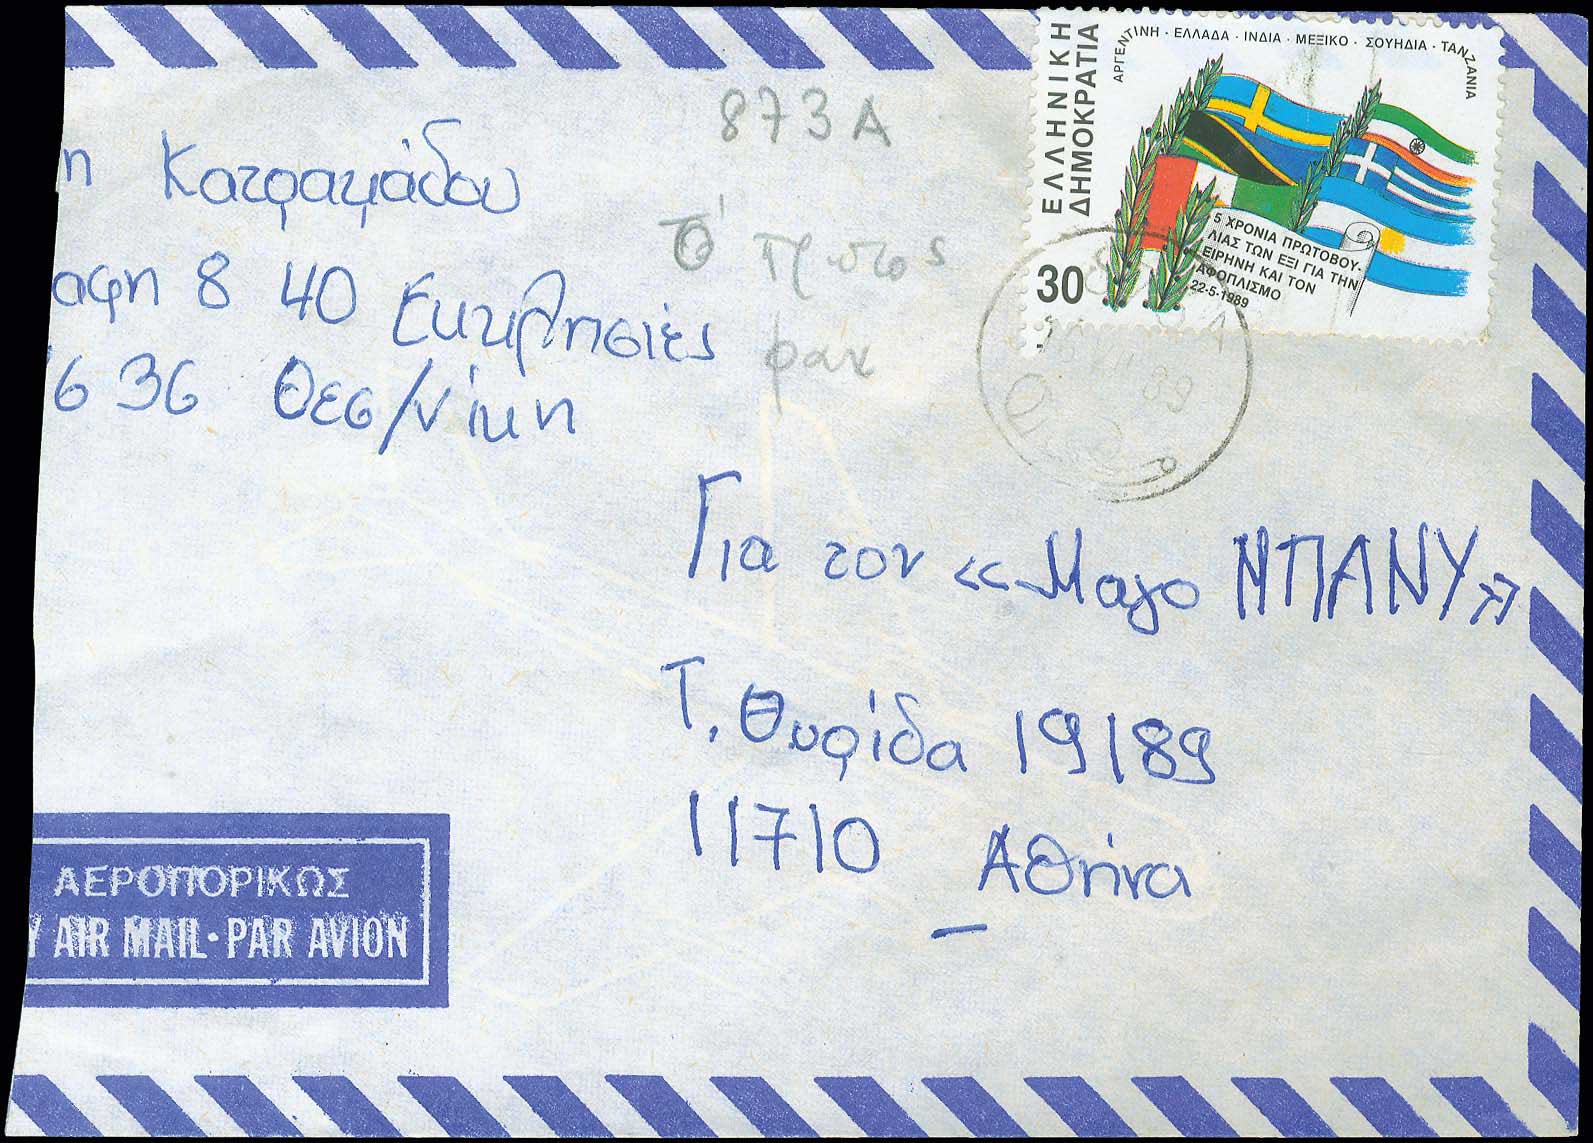 η Κατραμάδου
αφη 8 40 Εκκλησιές
6 36 Θεσ/νίκη
873 A
ΕΛΛΗΝΙΚΗ
ΔΗΜΟΚΡΑΤΙΑ
ΑΡΓΕΝΤΙΝΗ · ΕΛΛΑΔΑ · ΙΝΔΙΑ · ΜΕΞΙΚΟ · ΣΟΥΗΔΙΑ · ΤΑΝΖΑΝΙΑ
5 ΧΡΟΝΙΑ ΠΡΩΤΟΒΟΥ-
ΛΙΑΣ ΤΩΝ ΕΞΙ ΓΙΑ ΤΗΝ
ΕΙΡΗΝΗ ΚΑΙ ΤΟΝ
ΑΦΟΠΛΙΣΜΟ
22-5-1989
30
Για τον «Μαγο ΜΠΑΝΥ»
Τ. Θυρίδα 19189
11710 Αθήνα
ΑΕΡΟΠΟΡΙΚΩΣ
Y AIR MAIL · PAR AVION